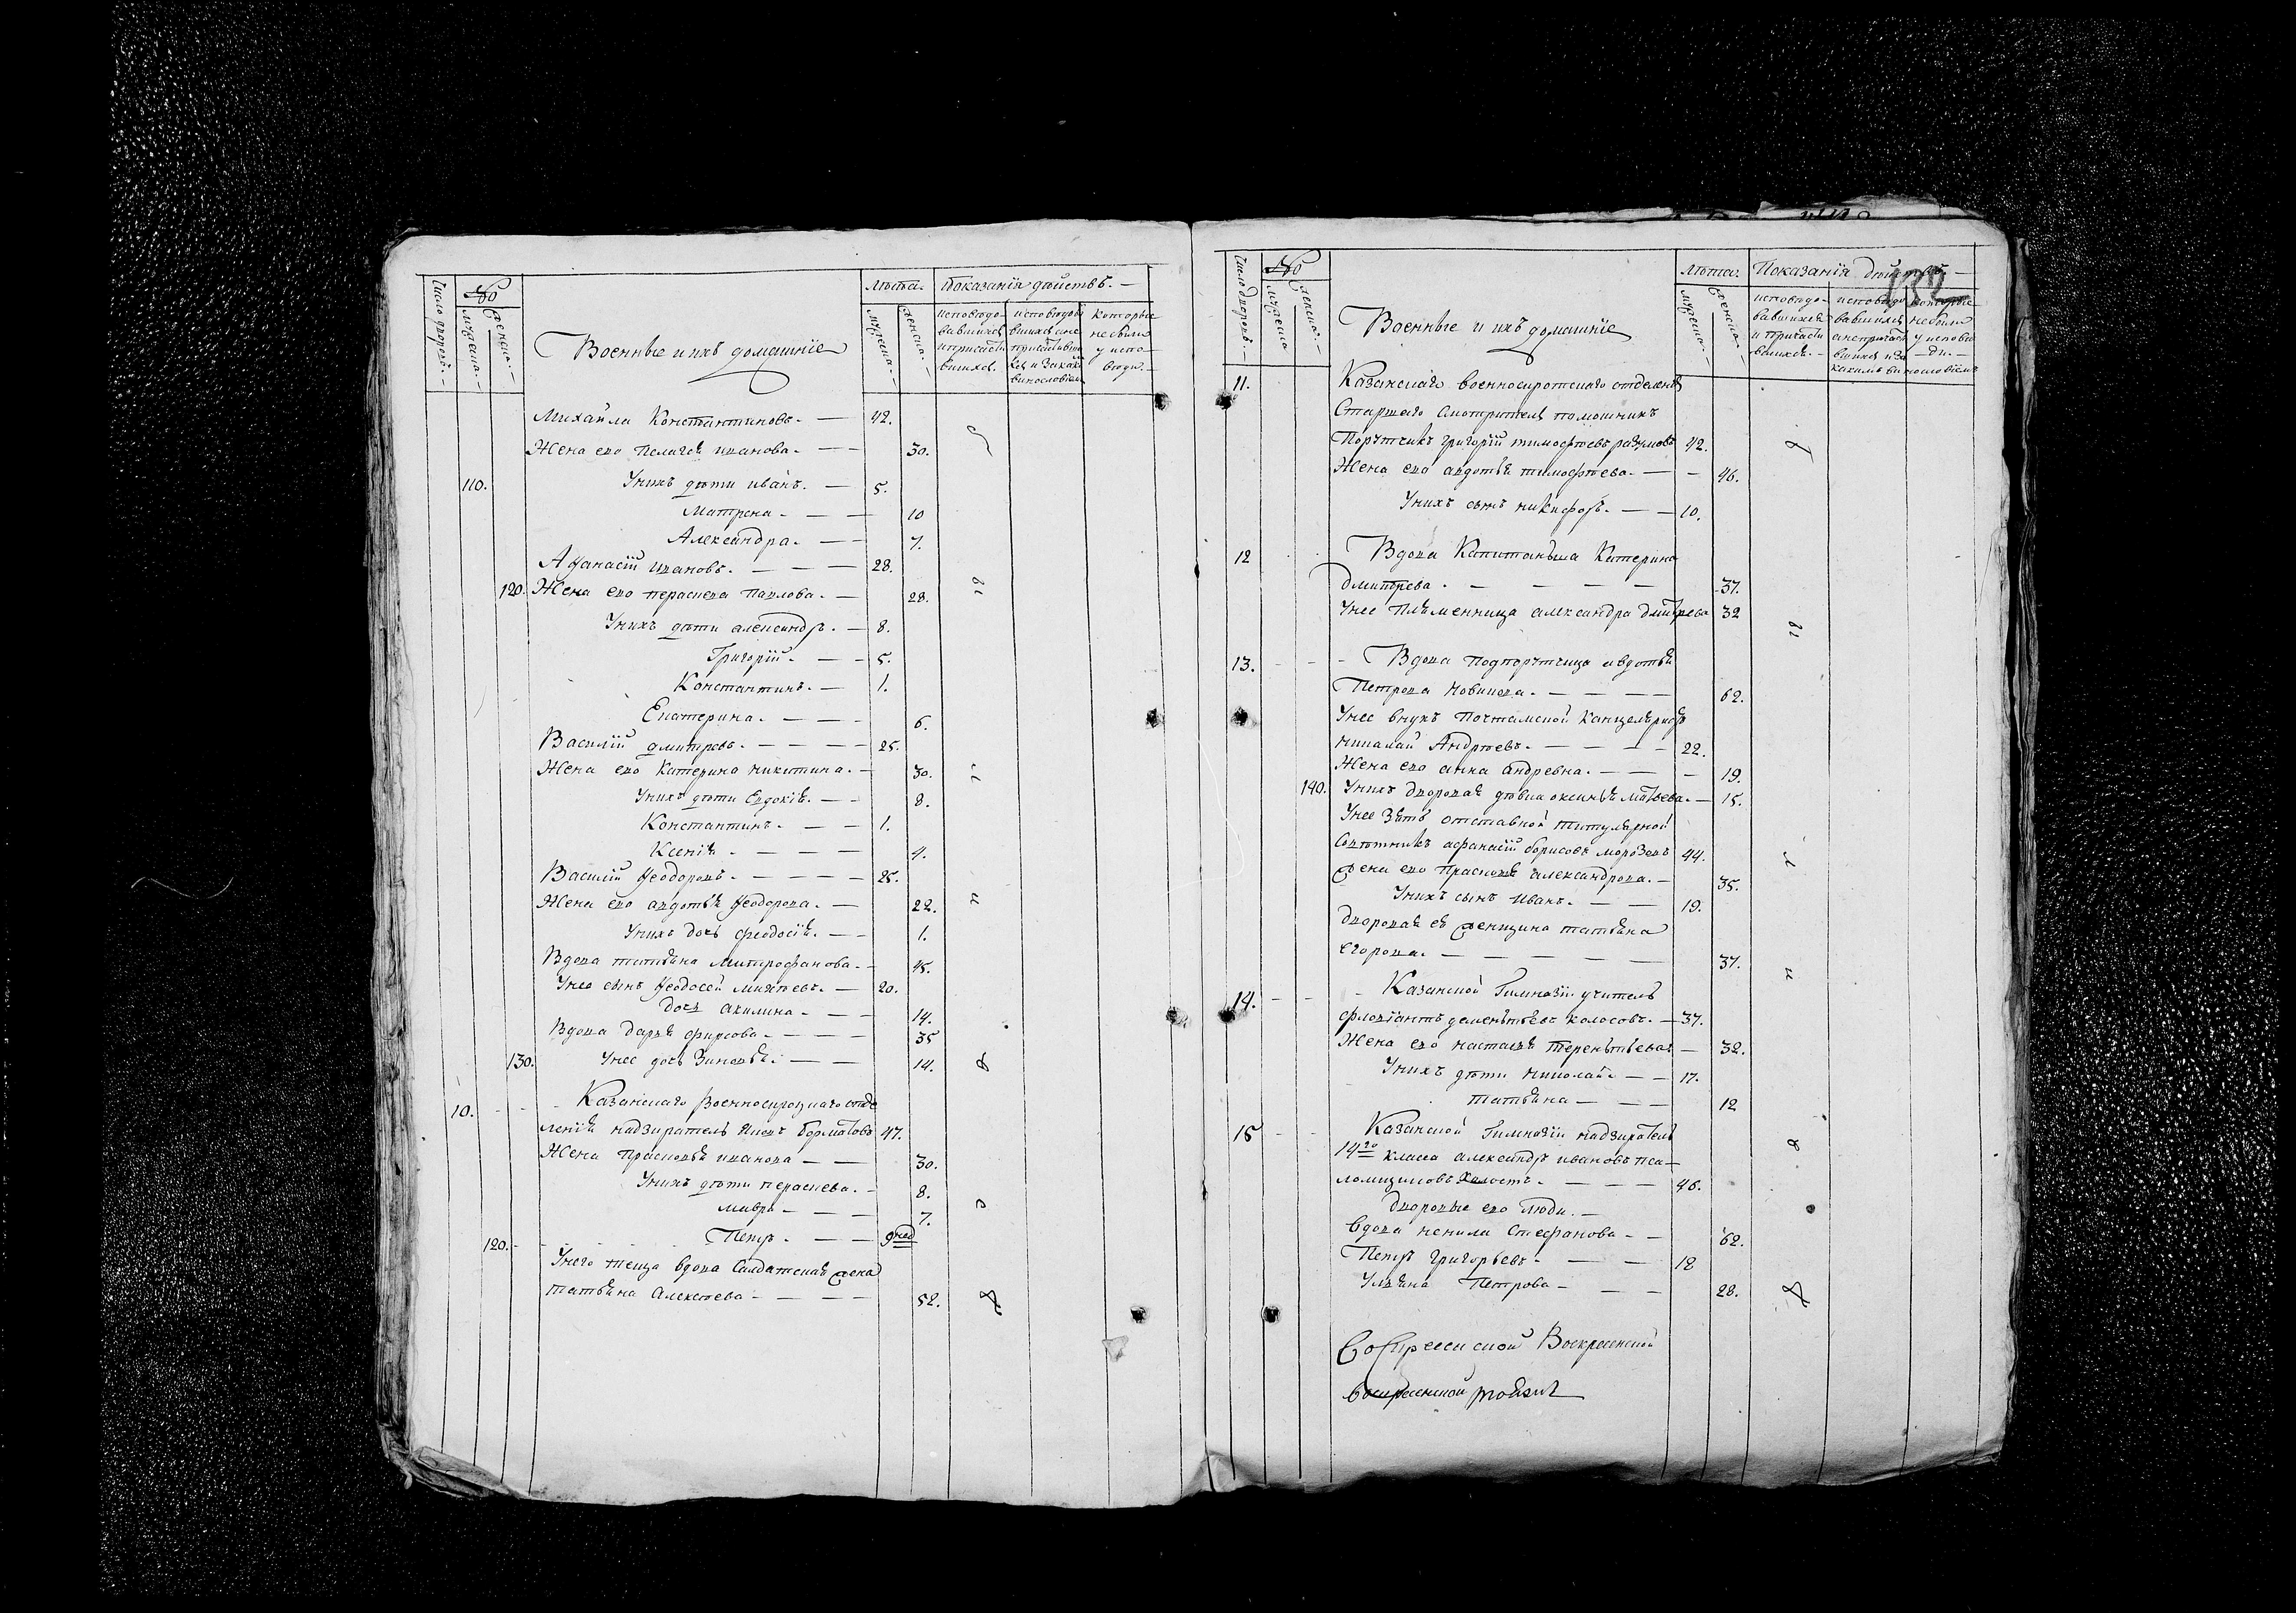 Число дворовъ.
№
мужеска.
женска.
Военные и ихъ домашніе
Лѣта.
мужеска.
женска.
Показанія дѣйствъ.
исповедо-
вавшихся
и причасти
вшихся.
исповедова
вшихся а не
причастивши
хся и за каки
винословіем
которые
не были
у испо-
веди.
Михайла Константиновъ. — 42.
Жена его Пелагея иванова. — 30.
110. У нихъ дѣти иванъ. — 5.
Матрена — 10
Александра. — 7.
Афанасій ивановъ. — 28.
120. Жена его параскева павлова. — 28.
У нихъ дѣти александръ. — 8.
Григорій. — 5.
Константинъ. — 1.
Екатерина. — 6.
Василій дмитревъ. — 25.
Жена его Катерина никитина. — 30.
У нихъ дѣти Евдокія. — 8.
Константинъ. — 1.
Ксенія — 4.
Василій Феодоровъ. — 25.
Жена его авдотья Феодорова. — 22.
У нихъ дочь феодосія. — 1.
Вдова татьяна митрофанова. — 45.
У нее сынъ Феодосей — 20.
дочь акилина — 14.
Вдова дарья фирсова — 35
130. У нее дочь Зиновья. — 14.
10. Казанскаго Военносиротскаго отде
ленія надзиратель 47.
Жена Прасковья иванова — 30.
У нихъ дѣти параскева. — 8.
мавра — 7.
120. Петръ. — 9 нед
У него теща вдова Салдатская жена
татьяна Алексеева — 52.
Число дворовъ.
№
мужеска
женска.
Военные и ихъ домашніе
Лѣта.
мужеска.
женска.
Показанія дѣйствъ.
исповедо-
вавшихся
и причасти
вшихся.
исповедо
вавшихся
а не причасти
вшихся и за
какимъ ви
которые
не были
у испове
ди.
нословіемъ
132
11. Казанскаго военносиротскаго отделенія
Старшаго Смотрителя помошникъ
Порутчикъ григорій тимофѣевъ разумовъ 42.
Жена его авдотья тимофѣева. — 46.
У нихъ сынъ никифоръ. — 10.
12 Вдова Капитанша Катерина
дмитрева. — 37.
У нее племенница александра дмитрева 32
13. Вдова подпорутчица авдотья
Петрова новикова. — 62.
У нее внукъ почтамской канцеляристъ
николай Андрѣевъ. — 22.
Жена его анна андревна. — 19.
140. У нихъ дворовая девка оксинья матвева. — 15.
У нее Зять отставной титулярной
Советникъ афанасій борисовъ морозовъ 44.
жена его прасковья александрова. — 35.
У нихъ сынъ иванъ. — 19.
дворовая ея женщина татьяна
Егорова. — 37.
14. Казанской Гимназіи учитель
флоріантъ дементьевъ колосовъ. — 37.
Жена его настасья терентьева — 32.
У нихъ дѣти николай. — 17.
татьяна — 12
15 Казанской Гимназіи надзиратель
14го класса александръ ивановъ пса-
ломщиковъ Холостъ. — 46.
дворовые его люди. —
Вдова ненила Стефанова — 62.
Петръ григорьевъ. — 18
Ульяна Петрова — 28.
Воскресенской